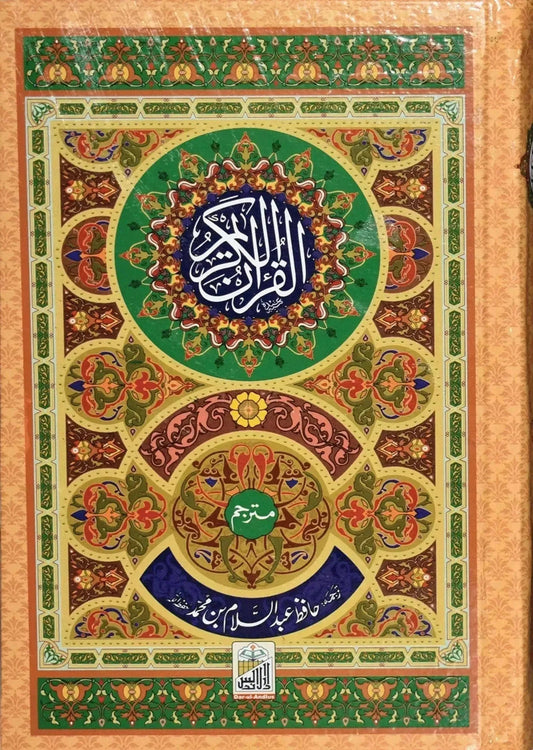 القرآن الكريم
مترجم
ترجمہ: حافظ عبد السلام بن محمد حفظہ اللہ
دارالاندلس
Dar-ul-Andlus